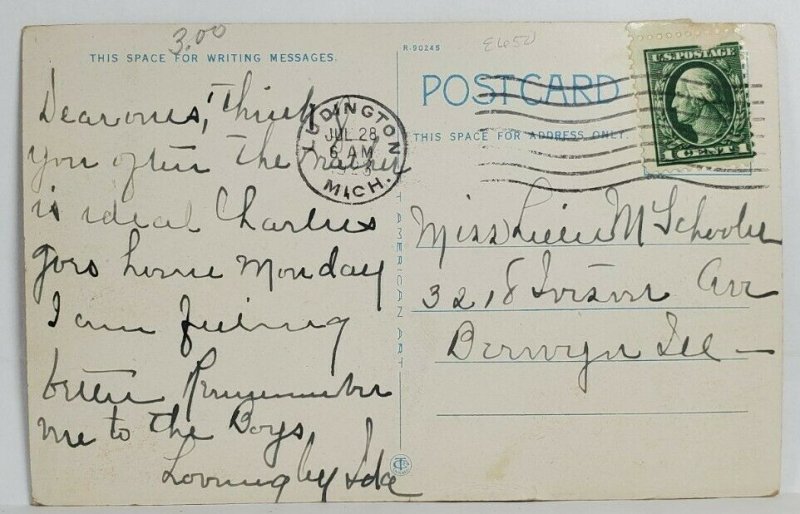 3.00
THIS SPACE FOR WRITING MESSAGES.
Dear ones, Think
you often the weather
is ideal Charlies
goes home Monday
I am feeling
better Remember
me to the Boys
Lovingly Ida
LUDINGTON
JUL 28
6 AM
MICH.
R-90245
POSTCARD
THIS SPACE FOR ADDRESS ONLY.
U.S. POSTAGE
1 CENT 1
AMERICAN ART
Miss
3218 Ave
Berwyn Ill